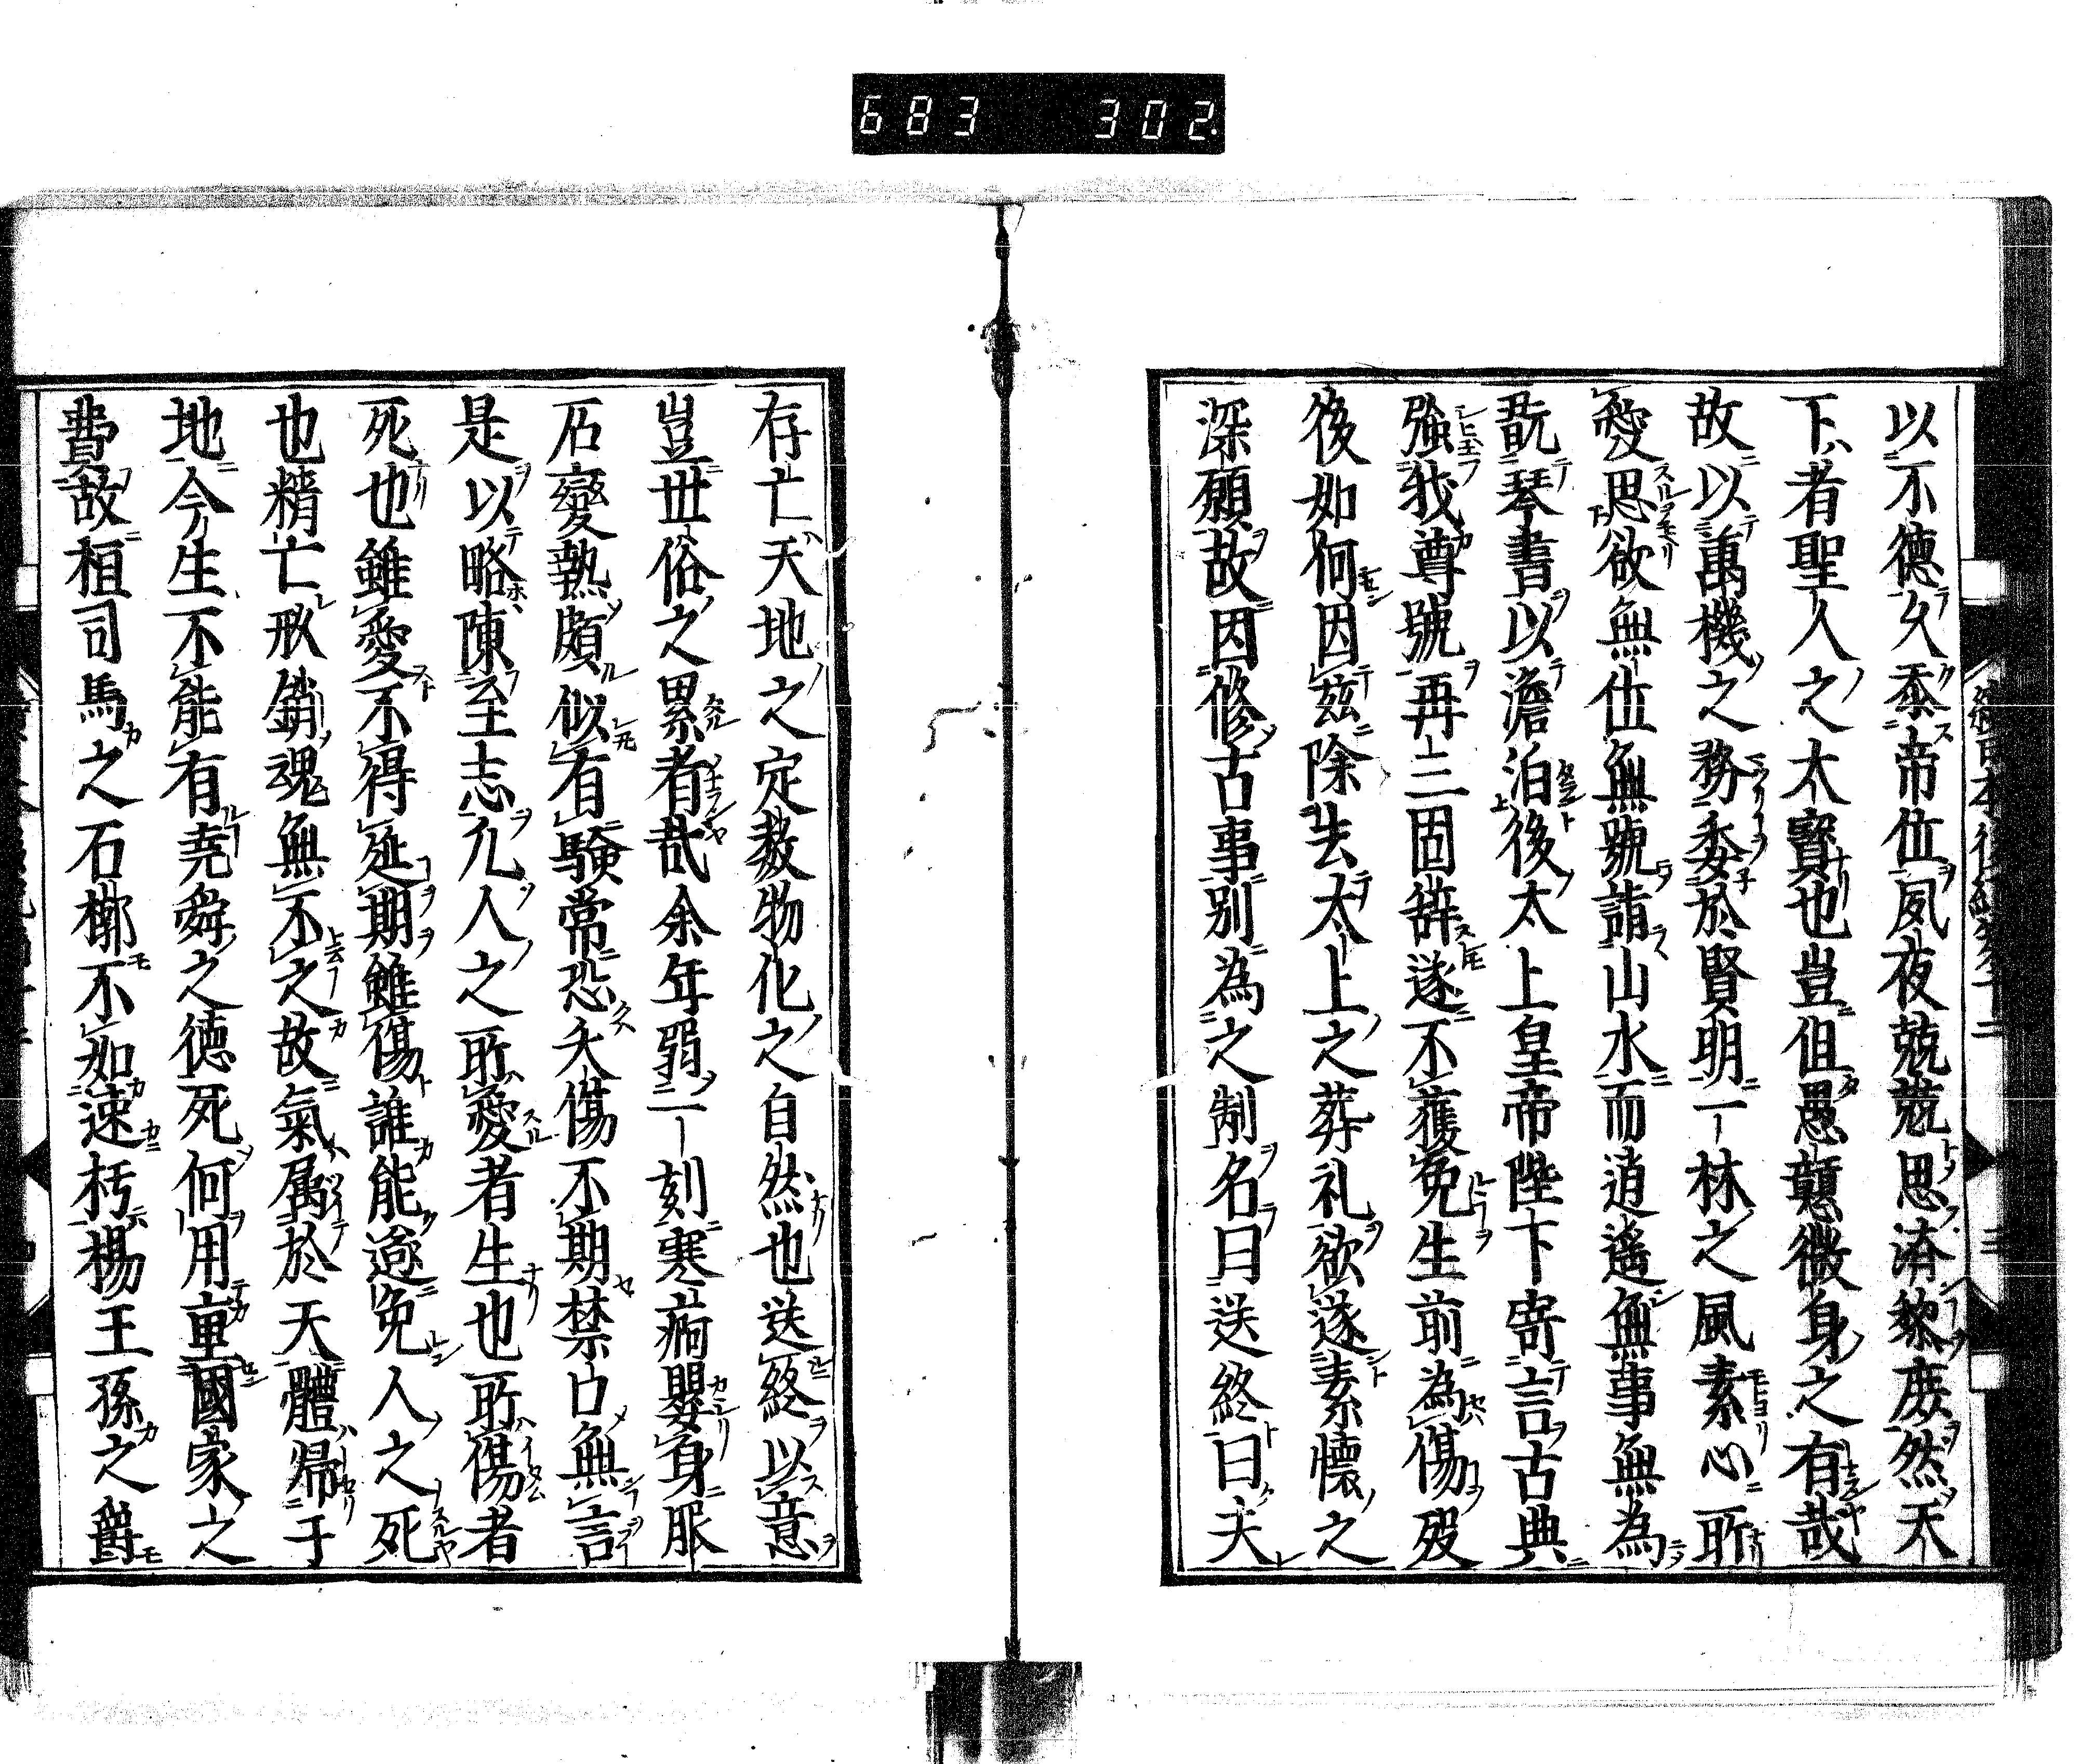 683 302
以不德久忝帝位夙夜兢兢思済黎庶然天
下者聖人之大寳也豈但愚憃微身之有哉
故以萬機之務委於賢明一林之風素心所
愛思欲無位無號詣山水而逍遙無事無為
翫琴書以澹泊後太上皇帝陛下寄言古典
強我尊號再三固辞遂不獲免生前為傷歿
後如何因茲除去太上之葬礼欲遂素懷之
深願故因修古事別為之制名曰送終曰夫
存亡天地之定数物化之自然也送終以意
豈世俗之累者哉余年弱一刻寒痾嬰身服
石變熱頗似有験常恐夭傷不期禁口無言
是以略陳至志凢人之所愛者生也所傷者
死也雖愛不得延期雖傷誰能遂免人之死
也精亡形銷魂無不之故氣属於天體帰于
地今生不能有堯舜之德死何用重國家之
費故桓司馬之石槨不如速朽楊王孫之爵